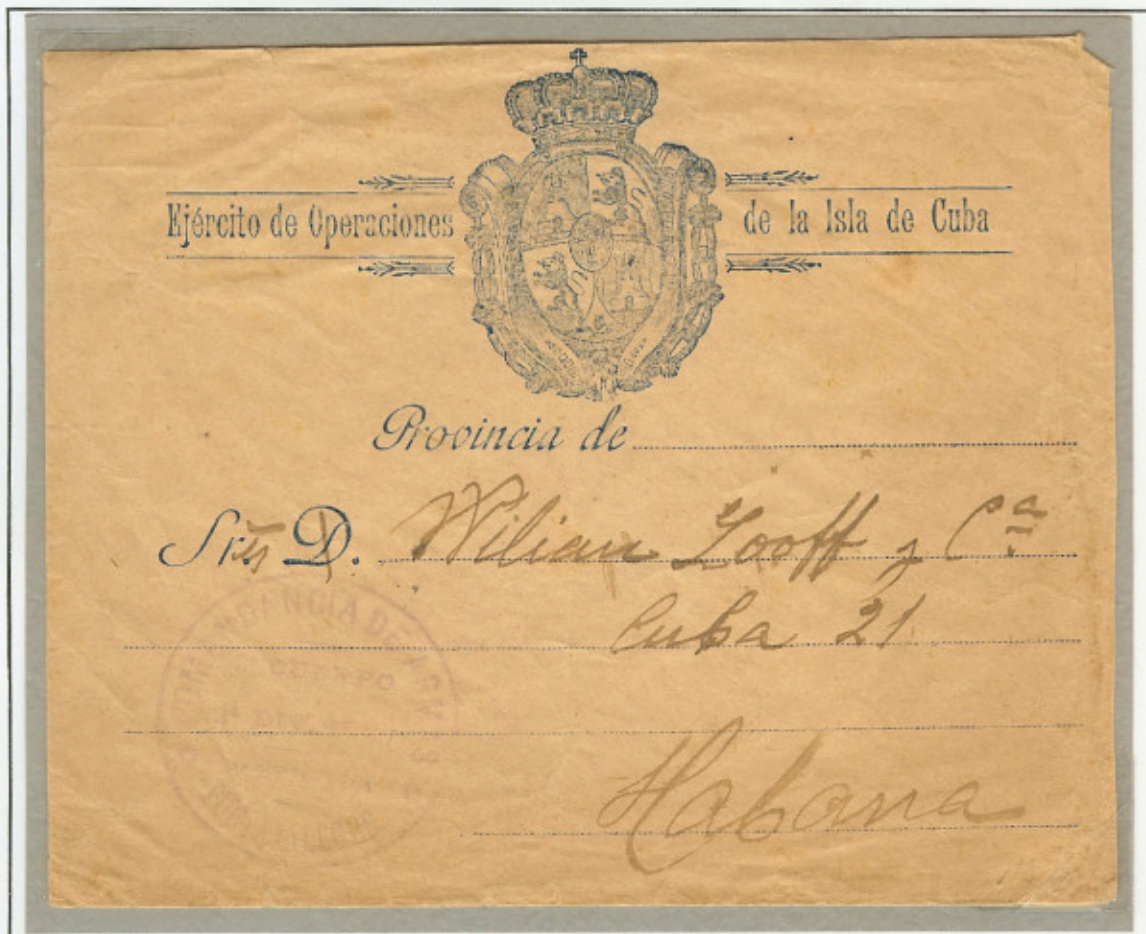 Ejército de Operaciones de la Isla de Cuba
Provincia de
Sres D. Wilian Looff y Cª
Cuba 21
Habana
CUERPO